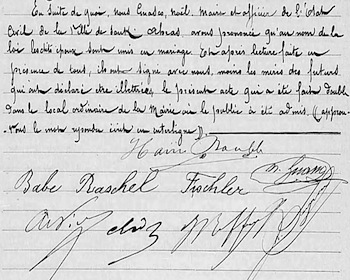 En suite de quoi, nous noël. Maire et officier de l'Etat
Civil de la Ville de avons prononcé qu'au nom de la
loi lesdits époux sont unis en mariage. Et après lecture faite en
présence de tous, ils ont signé avec nous, moins les mères des futurs
qui ont déclaré être illettrées, le présent acte qui a été fait double
dans le local ordinaire de la Mairie où le public a été admis. (approu-
vons le mot écrit en interligne).
Babe Raschel Fischler